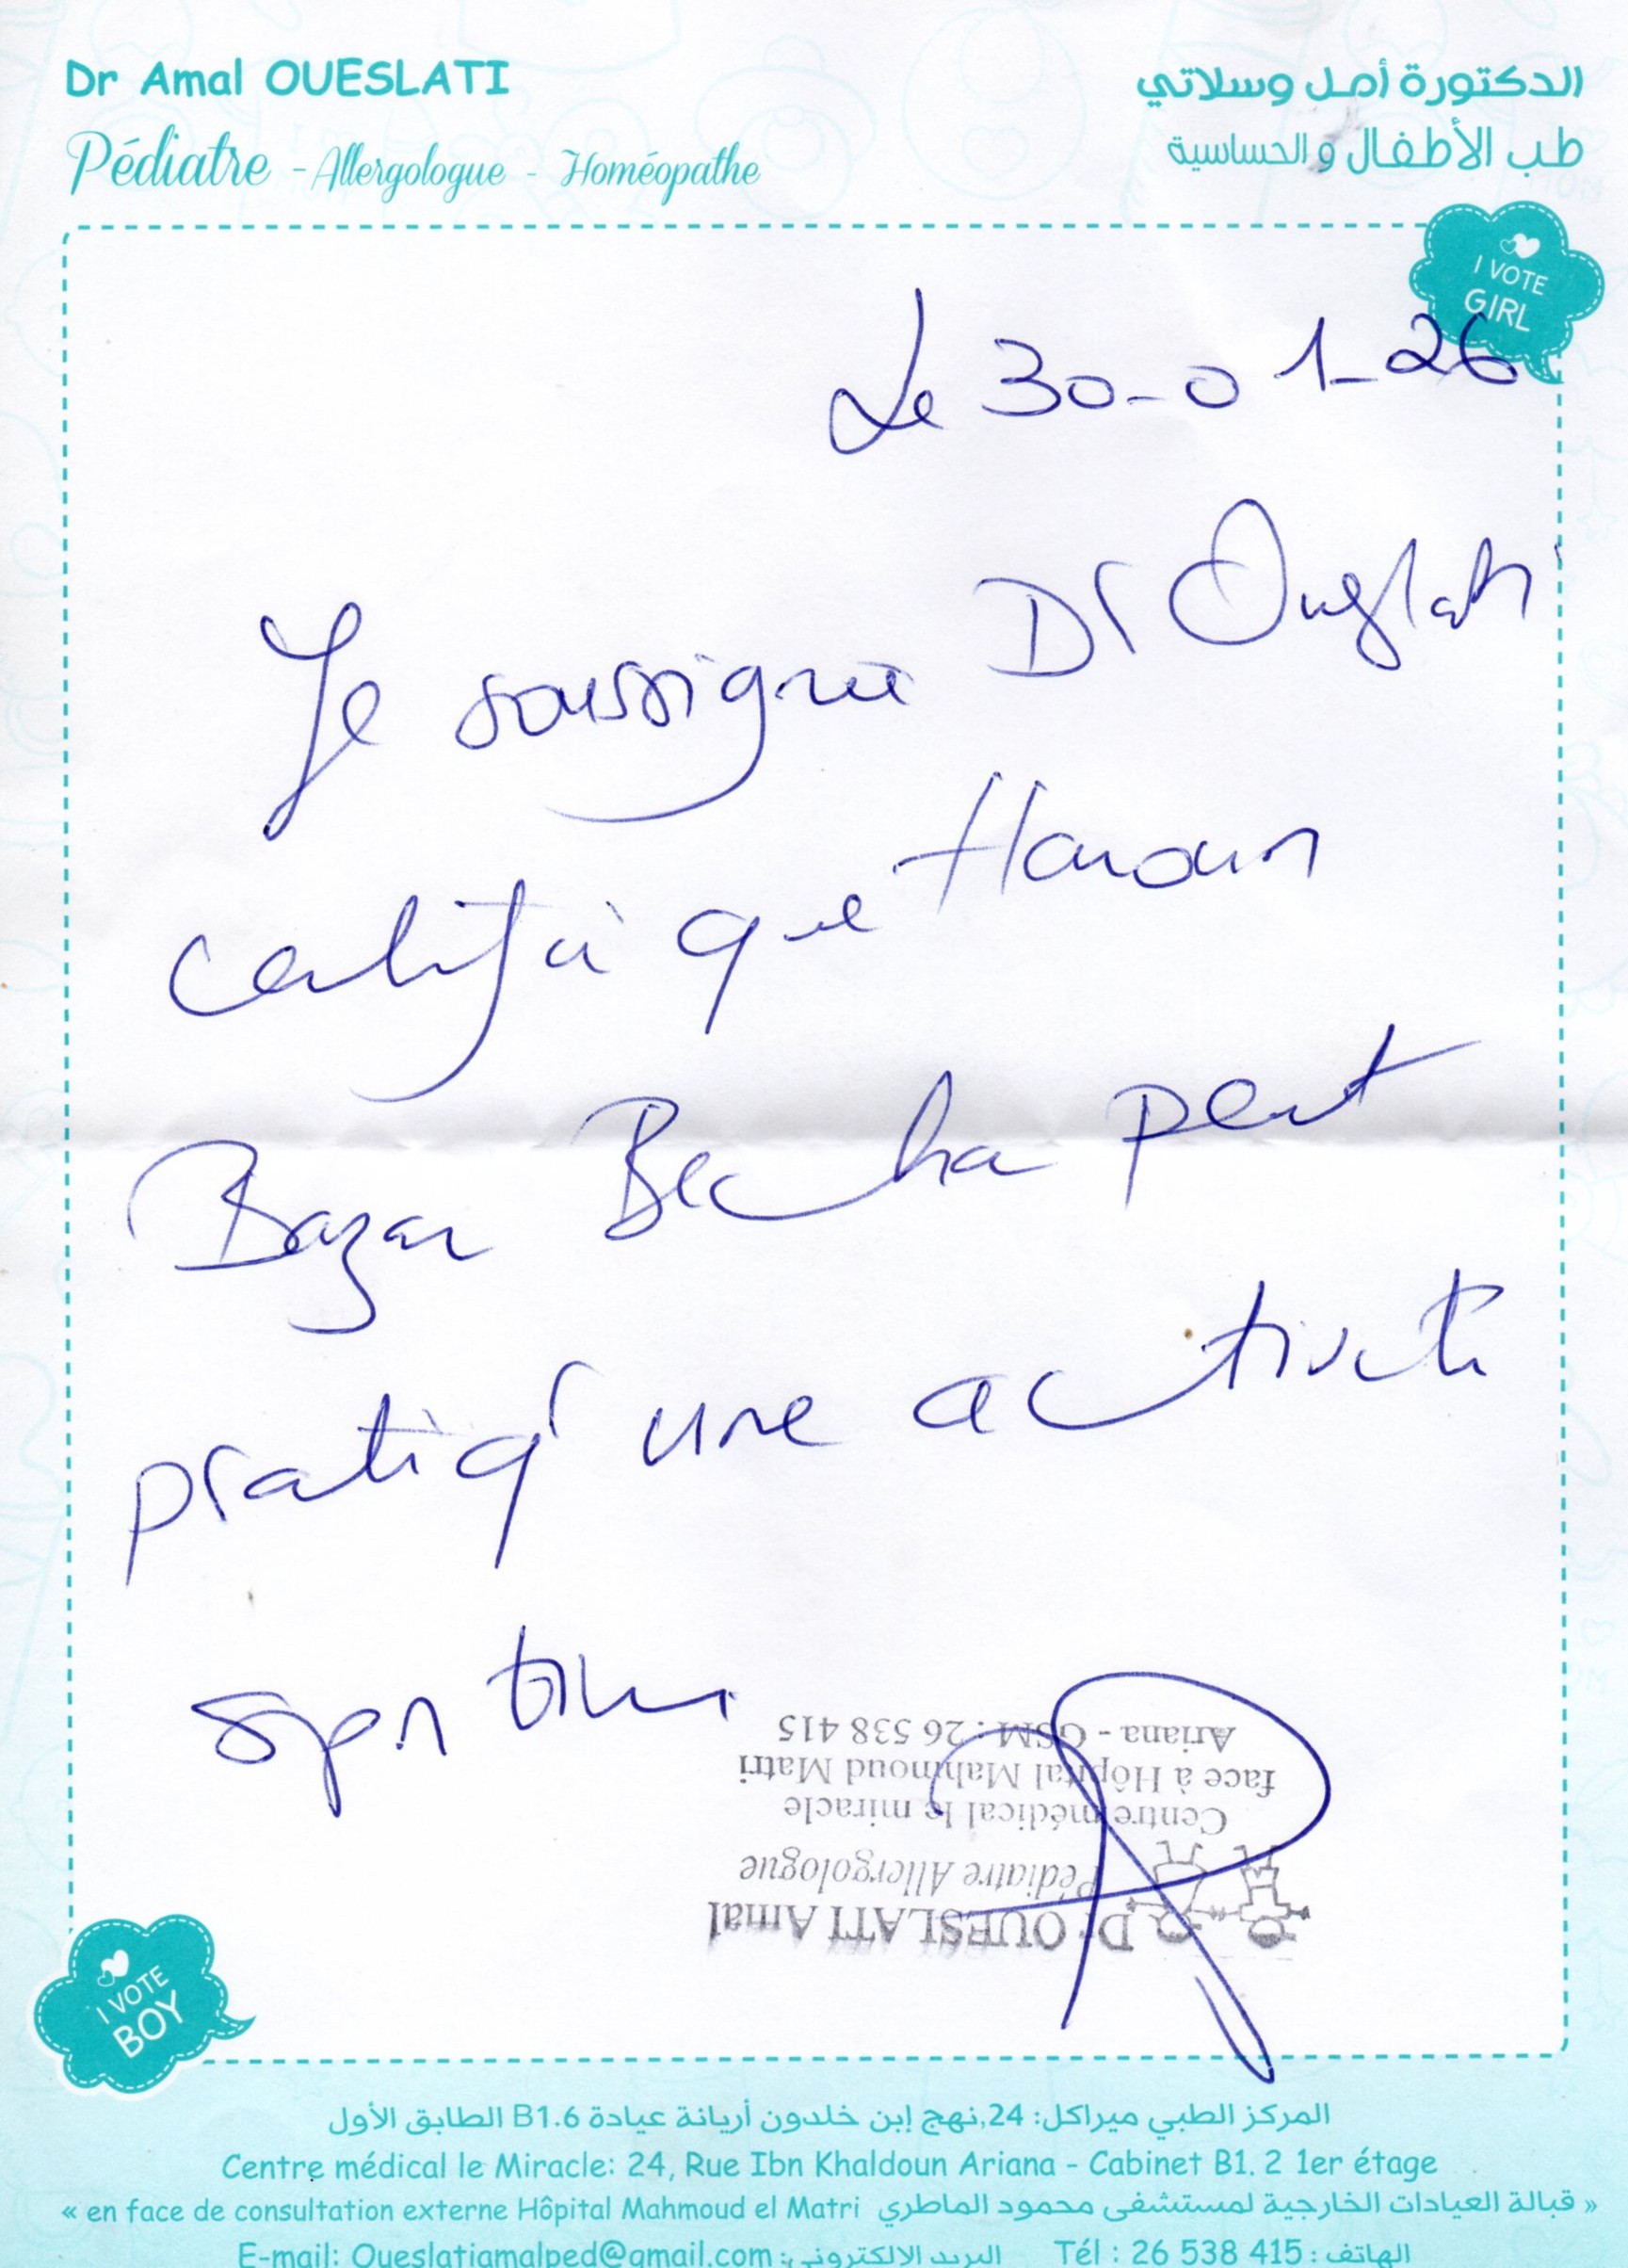 Dr Amal OUESLATI
الدكتورة أمل وسلاتي
Pédiatre - Allergologue - Homéopathe
طب الأطفال و الحساسية
I VOTE
GIRL
Le 30-01-26
Je soussigné Dr Oueslati
certifie que Haroun
Bazar Becha peut
pratiq' une activité
sportive
Ariana - GSM : 26 538 415
face à Hôpital Mahmoud Matri
Centre médical le miracle
Pédiatre Allergologue
Dr OUESLATI Amal
I VOTE
BOY
المركز الطبي ميراكل: 24,نهج إبن خلدون أريانة عيادة B1.6 الطابق الأول
Centre médical le Miracle: 24, Rue Ibn Khaldoun Ariana - Cabinet B1. 2 1er étage
« en face de consultation externe Hôpital Mahmoud el Matri قبالة العيادات الخارجية لمستشفى محمود الماطري »
E-mail: Oueslatiamalped@gmail.com :البريد الالكتروني Tél : 26 538 415 : الهاتف